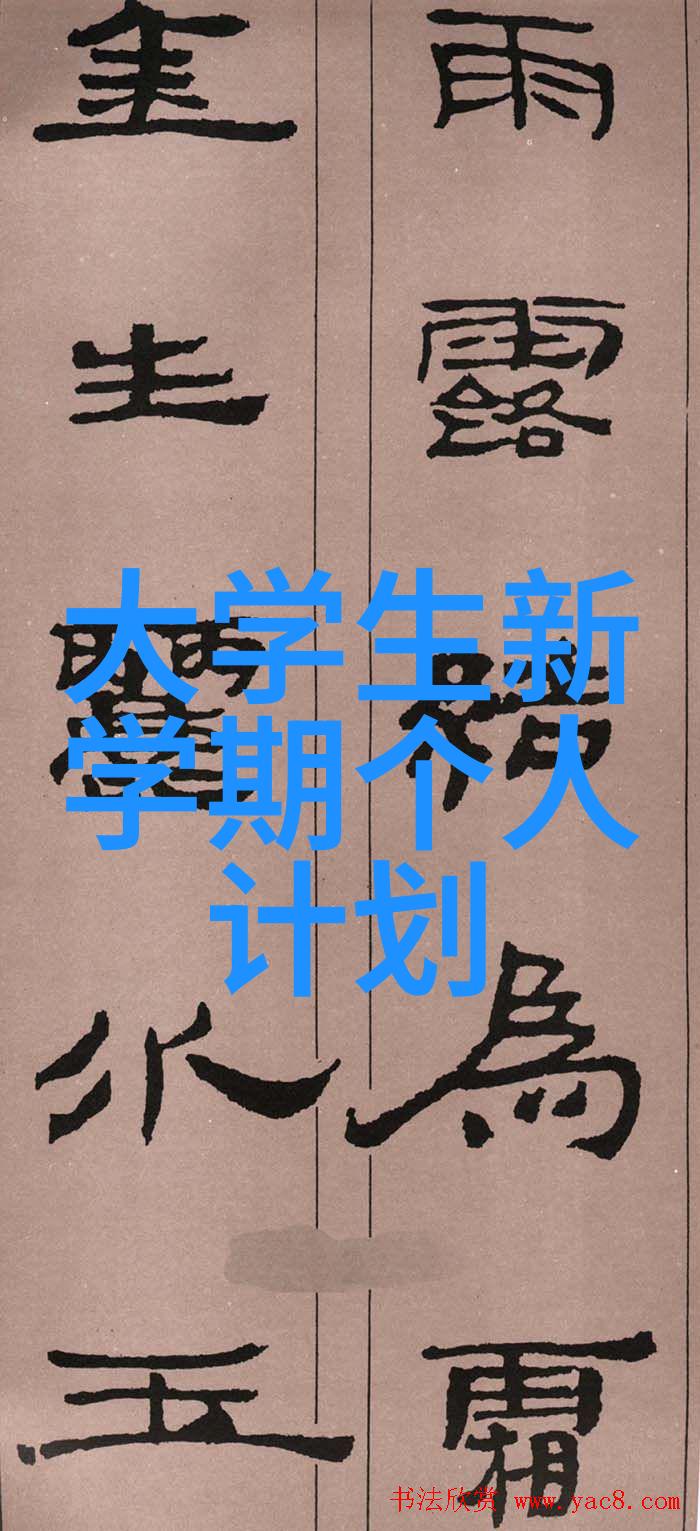 雨露結為霜
金生麗水玉
大学生新
学期个人
计划
书法欣赏 www.yac8.com